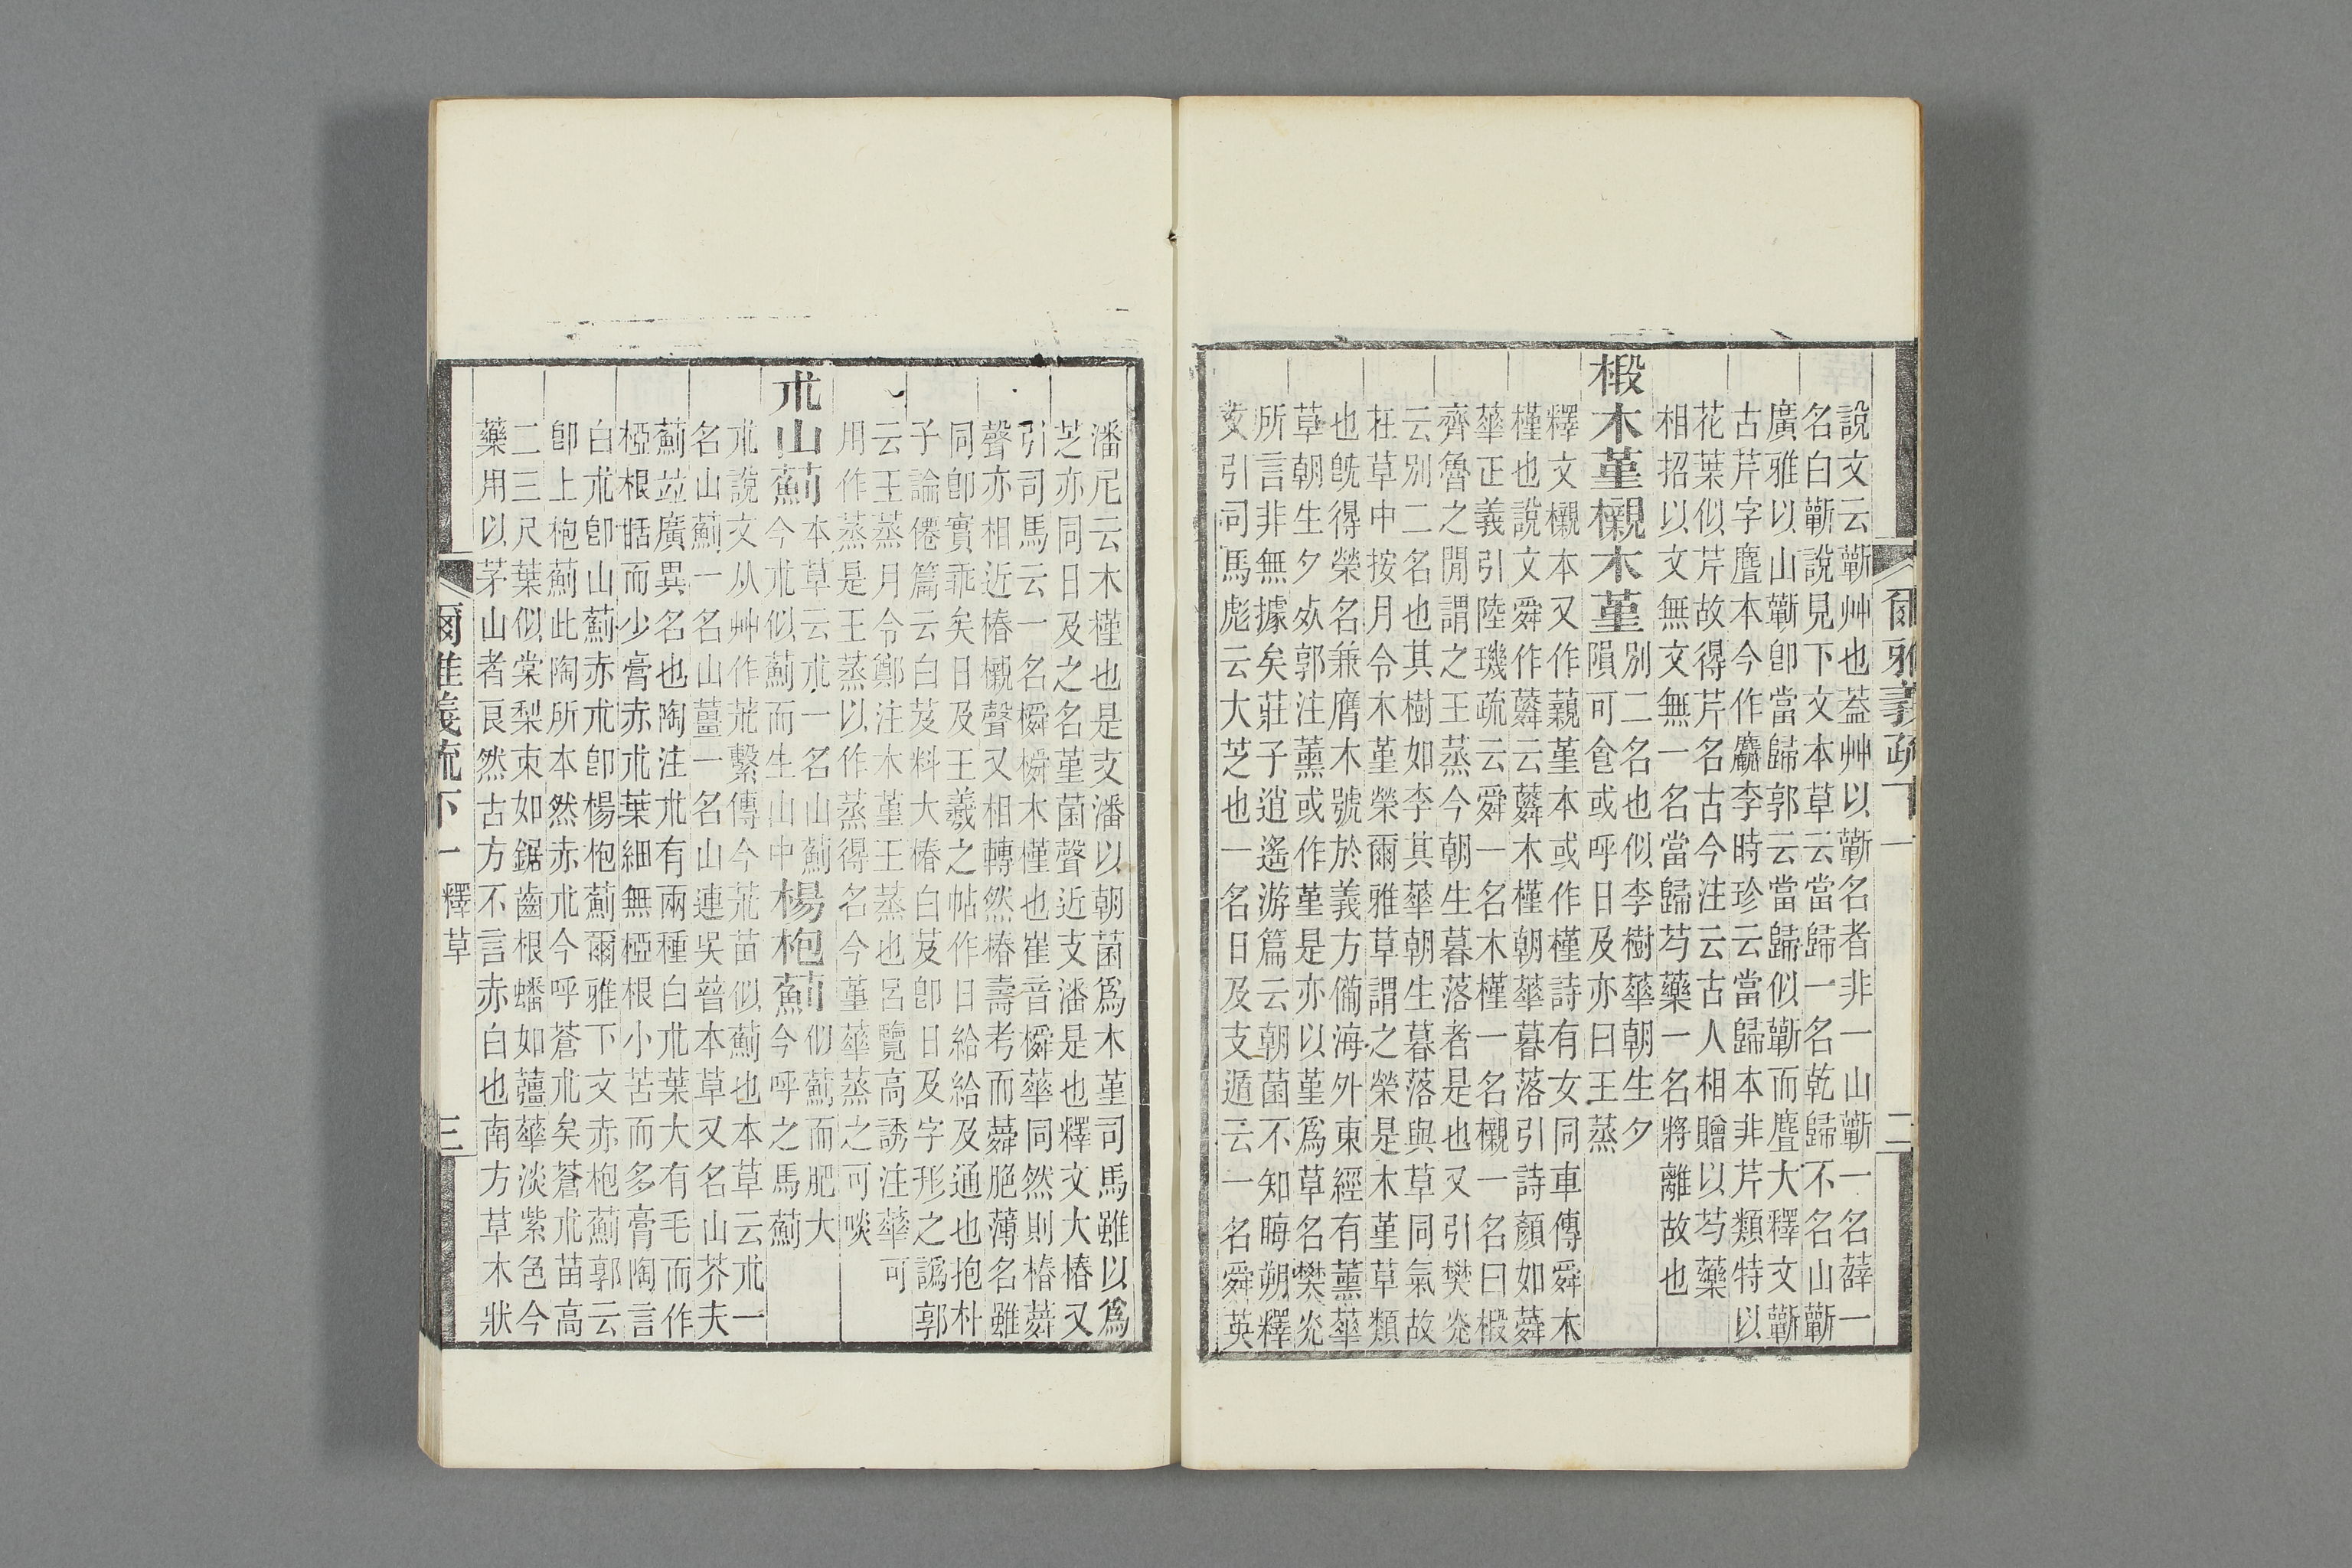 爾雅義疏下一
二
說文云蘄艸也葢艸以蘄名者非一山蘄一名薜一
名白蘄說見下文本草云當歸一名乾歸不名山蘄
廣雅以山蘄卽當歸郭云當歸似蘄而麤大釋文蘄
古芹字麆本今作麤李時珍云當歸本非芹類特以
花葉似芹故得芹名古今注云古人相贈以芍藥
相招以文無文無一名當歸芍藥一名將離故也
椴木堇櫬木堇
別二名也似李樹華朝生夕
隕可食或呼日及亦曰王蒸
釋文櫬本又作藽堇本或作槿詩有女同車傳舜木
槿也說文舜作蕣云蕣木槿朝華暮落引詩顏如蕣
華正義引陸璣疏云舜一名木槿一名櫬一名曰椴
齊魯之閒謂之王蒸今朝生暮落者是也又引樊光
云別二名也其樹如李其華朝生暮落與草同氣故
在草中按月令木堇榮爾雅草謂之榮是木堇草類
也旣得榮名兼膺木號於義方備海外東經有薰華
草朝生夕死郭注薰或作堇是亦以堇爲草名樊光
所言非無據矣莊子逍遙游篇云朝菌不知晦朔釋
文引司馬彪云大芝也一名日及支遁云一名舜英
潘尼云木槿也是支潘以朝菌爲木堇司馬雖以爲
芝亦同日及之名堇菌聲近支潘是也釋文大椿又
引司馬云一名橓橓木槿也崔音橓華同然則椿蕣
聲亦相近椿櫬聲又相轉然椿壽考而蕣脃薄名雖
同卽實乖矣日及王羲之帖作日給給及通也抱朴
子論僊篇云白芨料大椿白芨卽日及字形之譌郭
云王蒸月令鄭注木堇王蒸也呂覽高誘注華可
用作蒸是王蒸以作蒸得名今堇華蒸之可啖
朮山薊
本草云朮一名山薊
今朮似薊而生山中
楊枹薊
似薊而肥大
今呼之馬薊
朮說文从艸作荒繫傳今荒苗似薊也本草云朮一
名山薊一名山薑一名山連吳普本草又名山芥夫
薊竝廣異名也陶注朮有兩種白朮葉大有毛而作
椏根甛而少膏赤朮葉細無椏根小苦而多膏陶言
白朮卽山薊赤朮卽楊枹薊爾雅下文赤枹薊郭云
卽上枹薊此陶所本然赤朮今呼蒼朮矣蒼朮苗高
二三尺葉似棠梨朿如鋸齒根蟠如薑華淡紫色今
藥用以茅山者良然古方不言赤白也南方草木狀
爾雅義疏下一
釋草
三